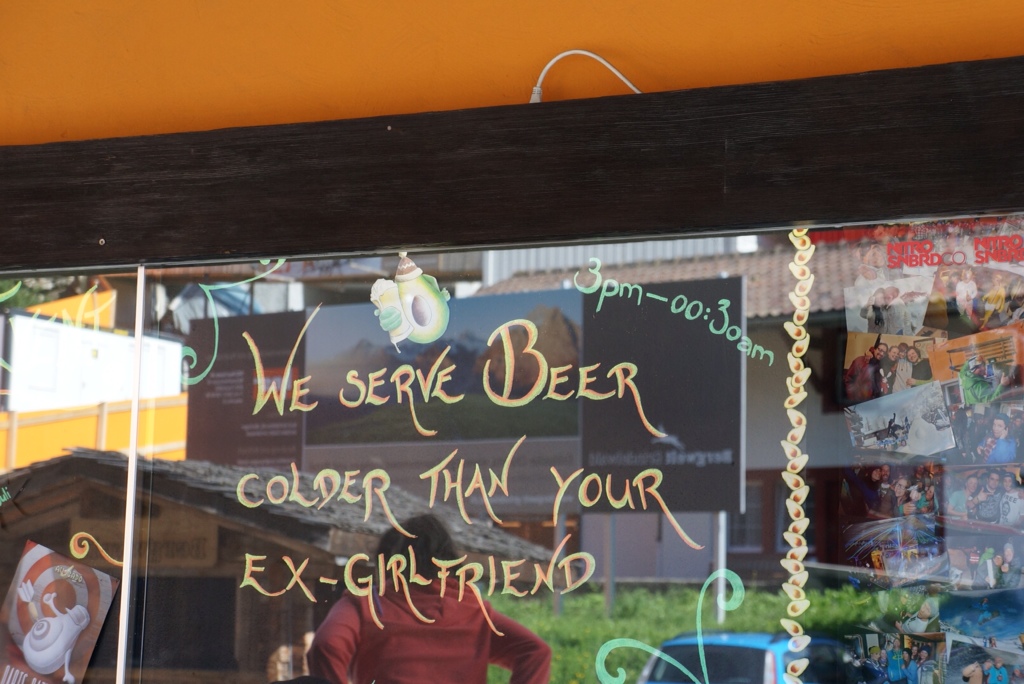 NITRO NITRO
SNBRDCO. SNBRD
3pm-00:30am
WE SERVE BEER
COLDER THAN YOUR
EX-GIRLFRIEND